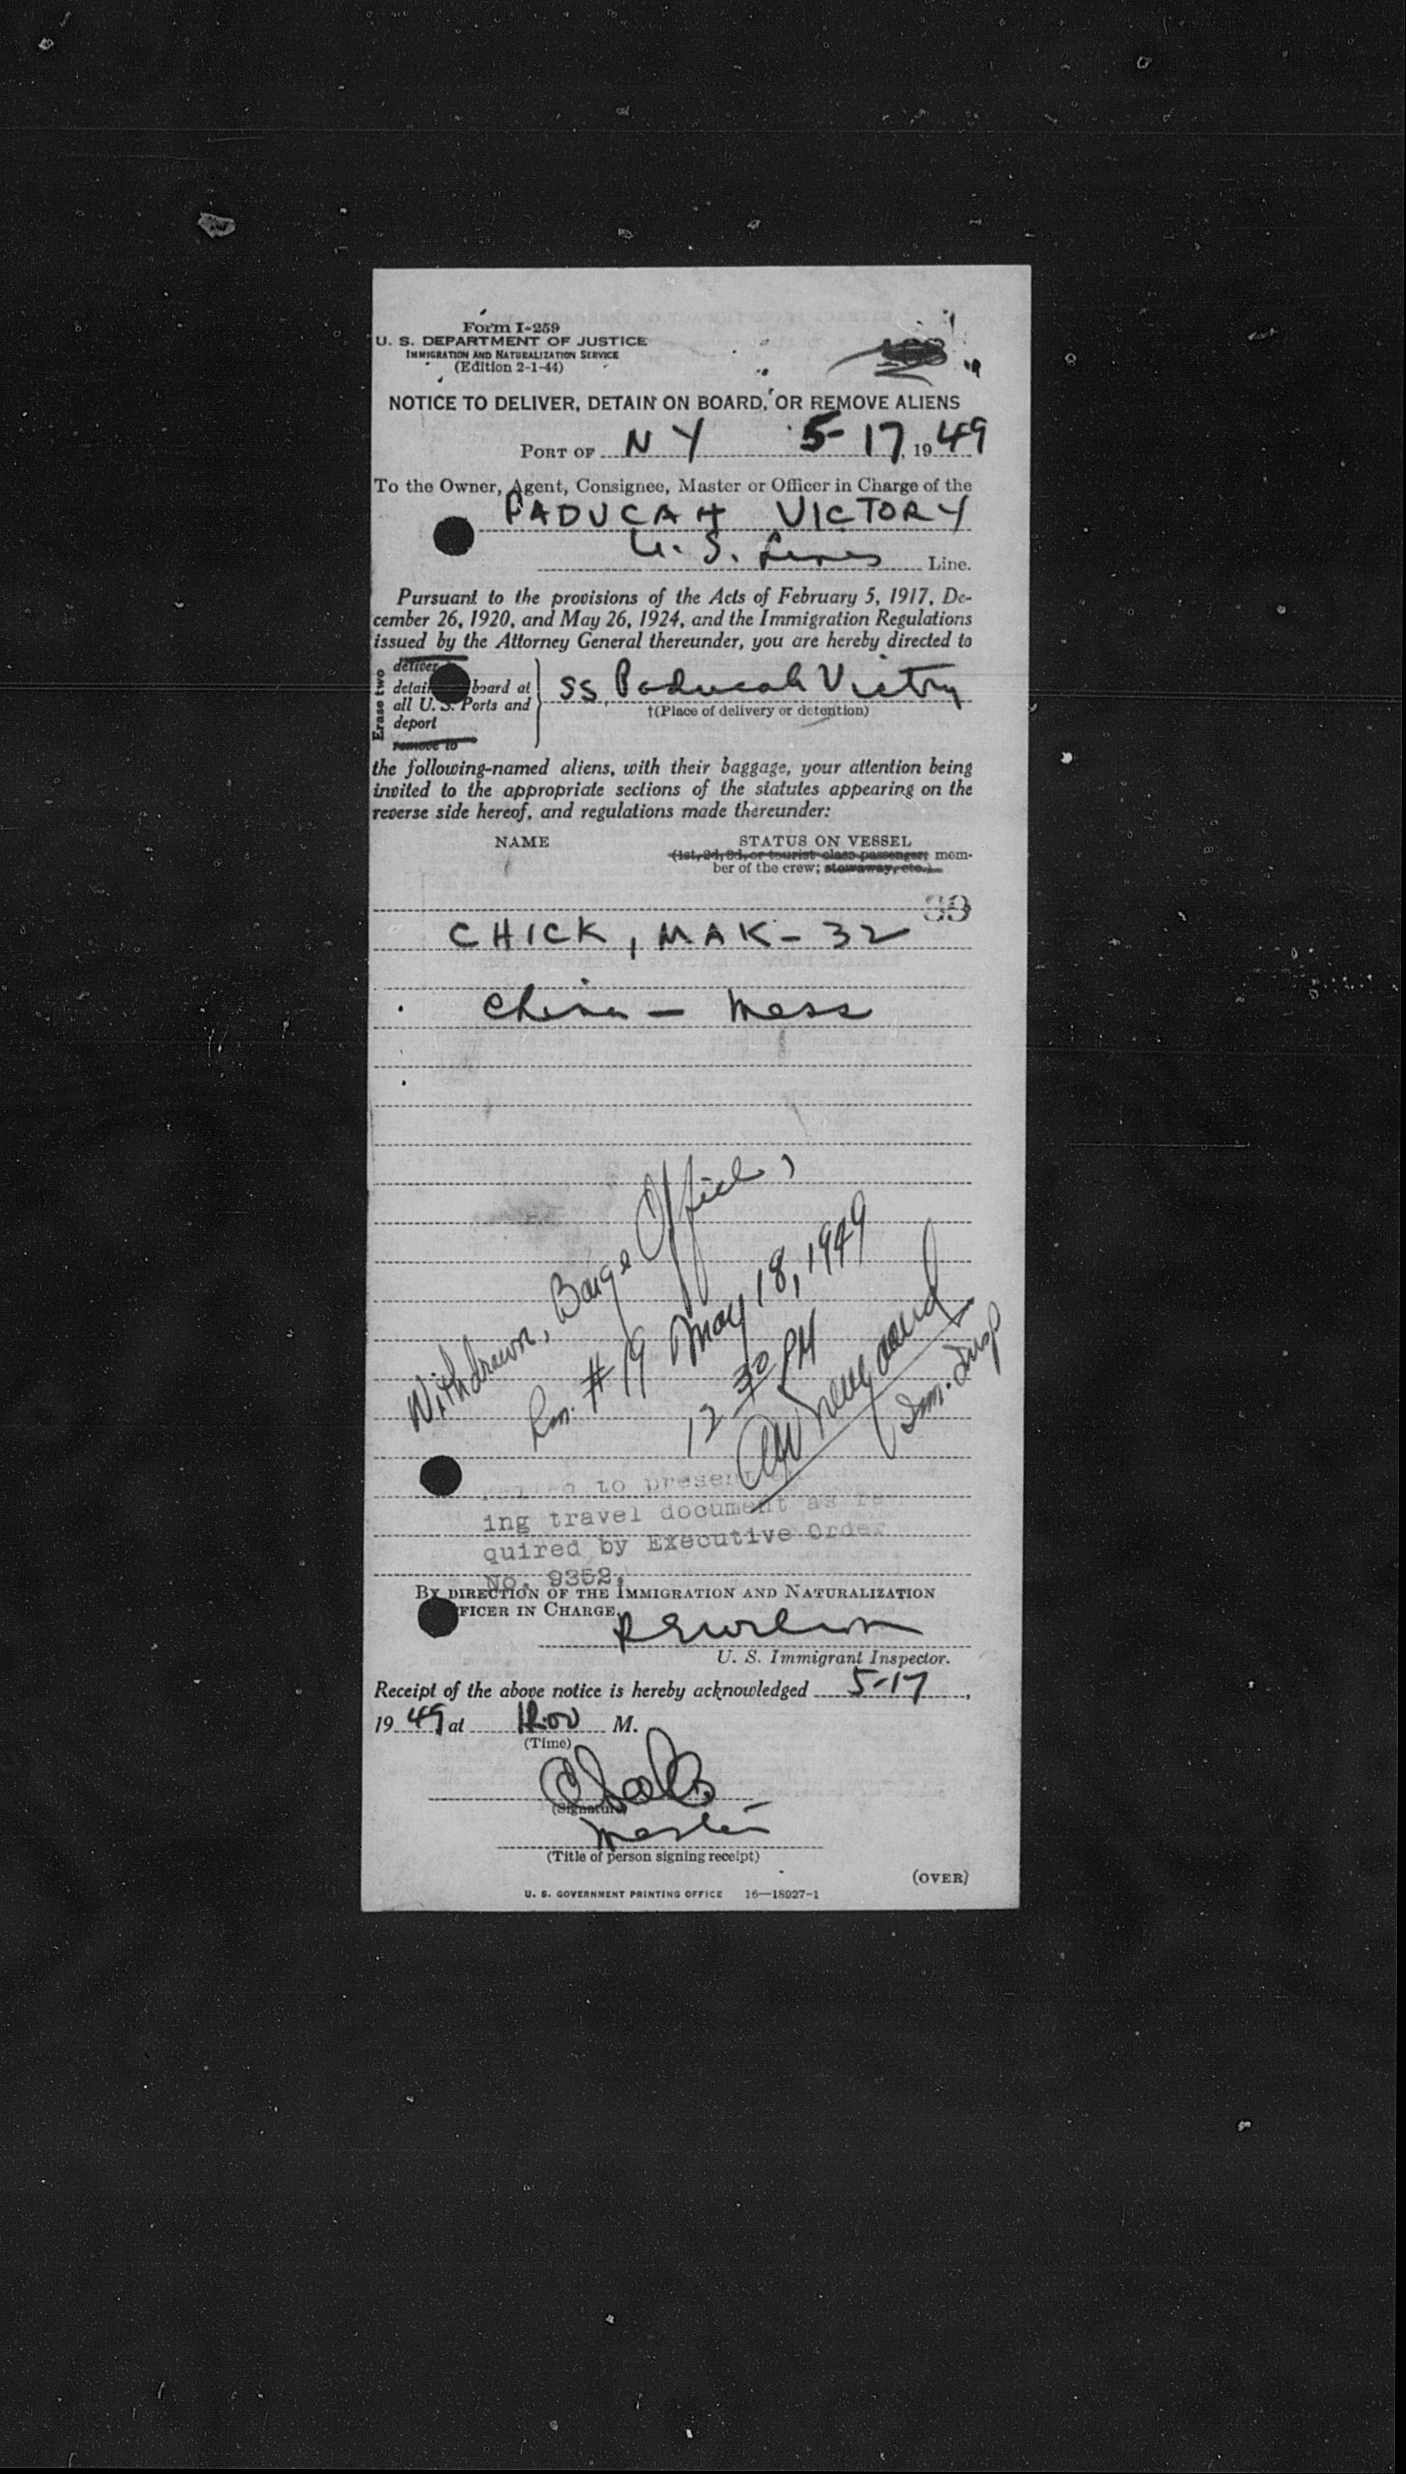 Form I-259
U. S. DEPARTMENT OF JUSTICE
IMMIGRATION AND NATURALIZATION SERVICE
(Edition 2-1-44)
NOTICE TO DELIVER, DETAIN ON BOARD, OR REMOVE ALIENS
PORT OF N Y 5-17, 1949
To the Owner, Agent, Consignee, Master or Officer in Charge of the
PADUCAH VICTORY
U. S. Lines Line.
Pursuant to the provisions of the Acts of February 5, 1917, De-
cember 26, 1920, and May 26, 1924, and the Immigration Regulations
issued by the Attorney General thereunder, you are hereby directed to
Erase two
deliver
detain board at
all U. S. Ports and
deport
remove to
SS Paducah Victory
†(Place of delivery or detention)
the following-named aliens, with their baggage, your attention being
invited to the appropriate sections of the statutes appearing on the
reverse side hereof, and regulations made thereunder:
NAME STATUS ON VESSEL
(1st, 2d, 3d, or tourist class passenger; mem-
ber of the crew; stowaway, etc.)
39
CHICK, MAK - 32
China - Mess
Withdrawn, Barge Office,
Rm. #19 May 18, 1949
12 30 PM
Imm. Insp
to present
ing travel document as re
quired by Executive Order
No. 9352.
BY DIRECTION OF THE IMMIGRATION AND NATURALIZATION
FICER IN CHARGE.
U. S. Immigrant Inspector.
Receipt of the above notice is hereby acknowledged 5-17,
1949 at M.
(Time)
(Signature)
Master
(Title of person signing receipt)
(OVER)
U. S. GOVERNMENT PRINTING OFFICE 16—18027-1